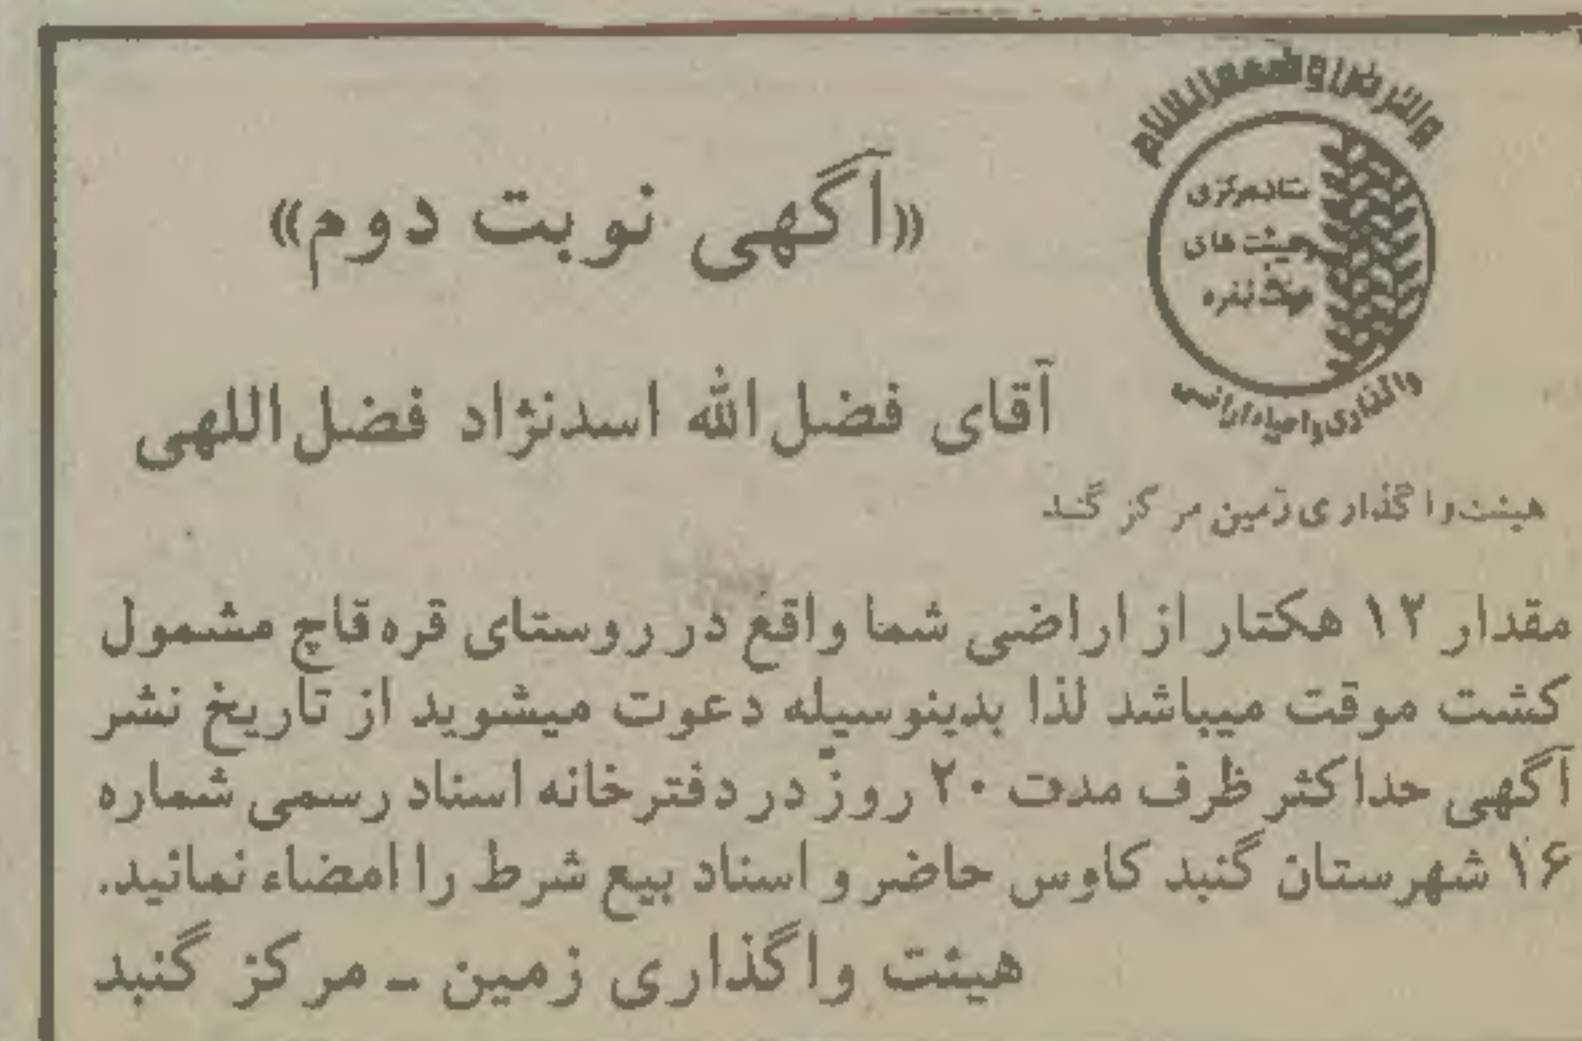 والارض وضعها للانام
ستاد مرکزی
هیئت های
هفت نفره
واگذاری و احیاء اراضی
«آگهی نوبت دوم»
آقای فضل‌الله اسدنژاد فضل‌اللهی
هیئت واگذاری زمین مرکز گنبد
مقدار ۱۲ هکتار از اراضی شما واقع در روستای قره قاچ مشمول
کشت موقت میباشد لذا بدینوسیله دعوت میشوید از تاریخ نشر
آگهی حداکثر ظرف مدت ۲۰ روز در دفترخانه اسناد رسمی شماره
۱۶ شهرستان گنبد کاوس حاضر و اسناد بیع شرط را امضاء نمائید.
هیئت واگذاری زمین ـ مرکز گنبد